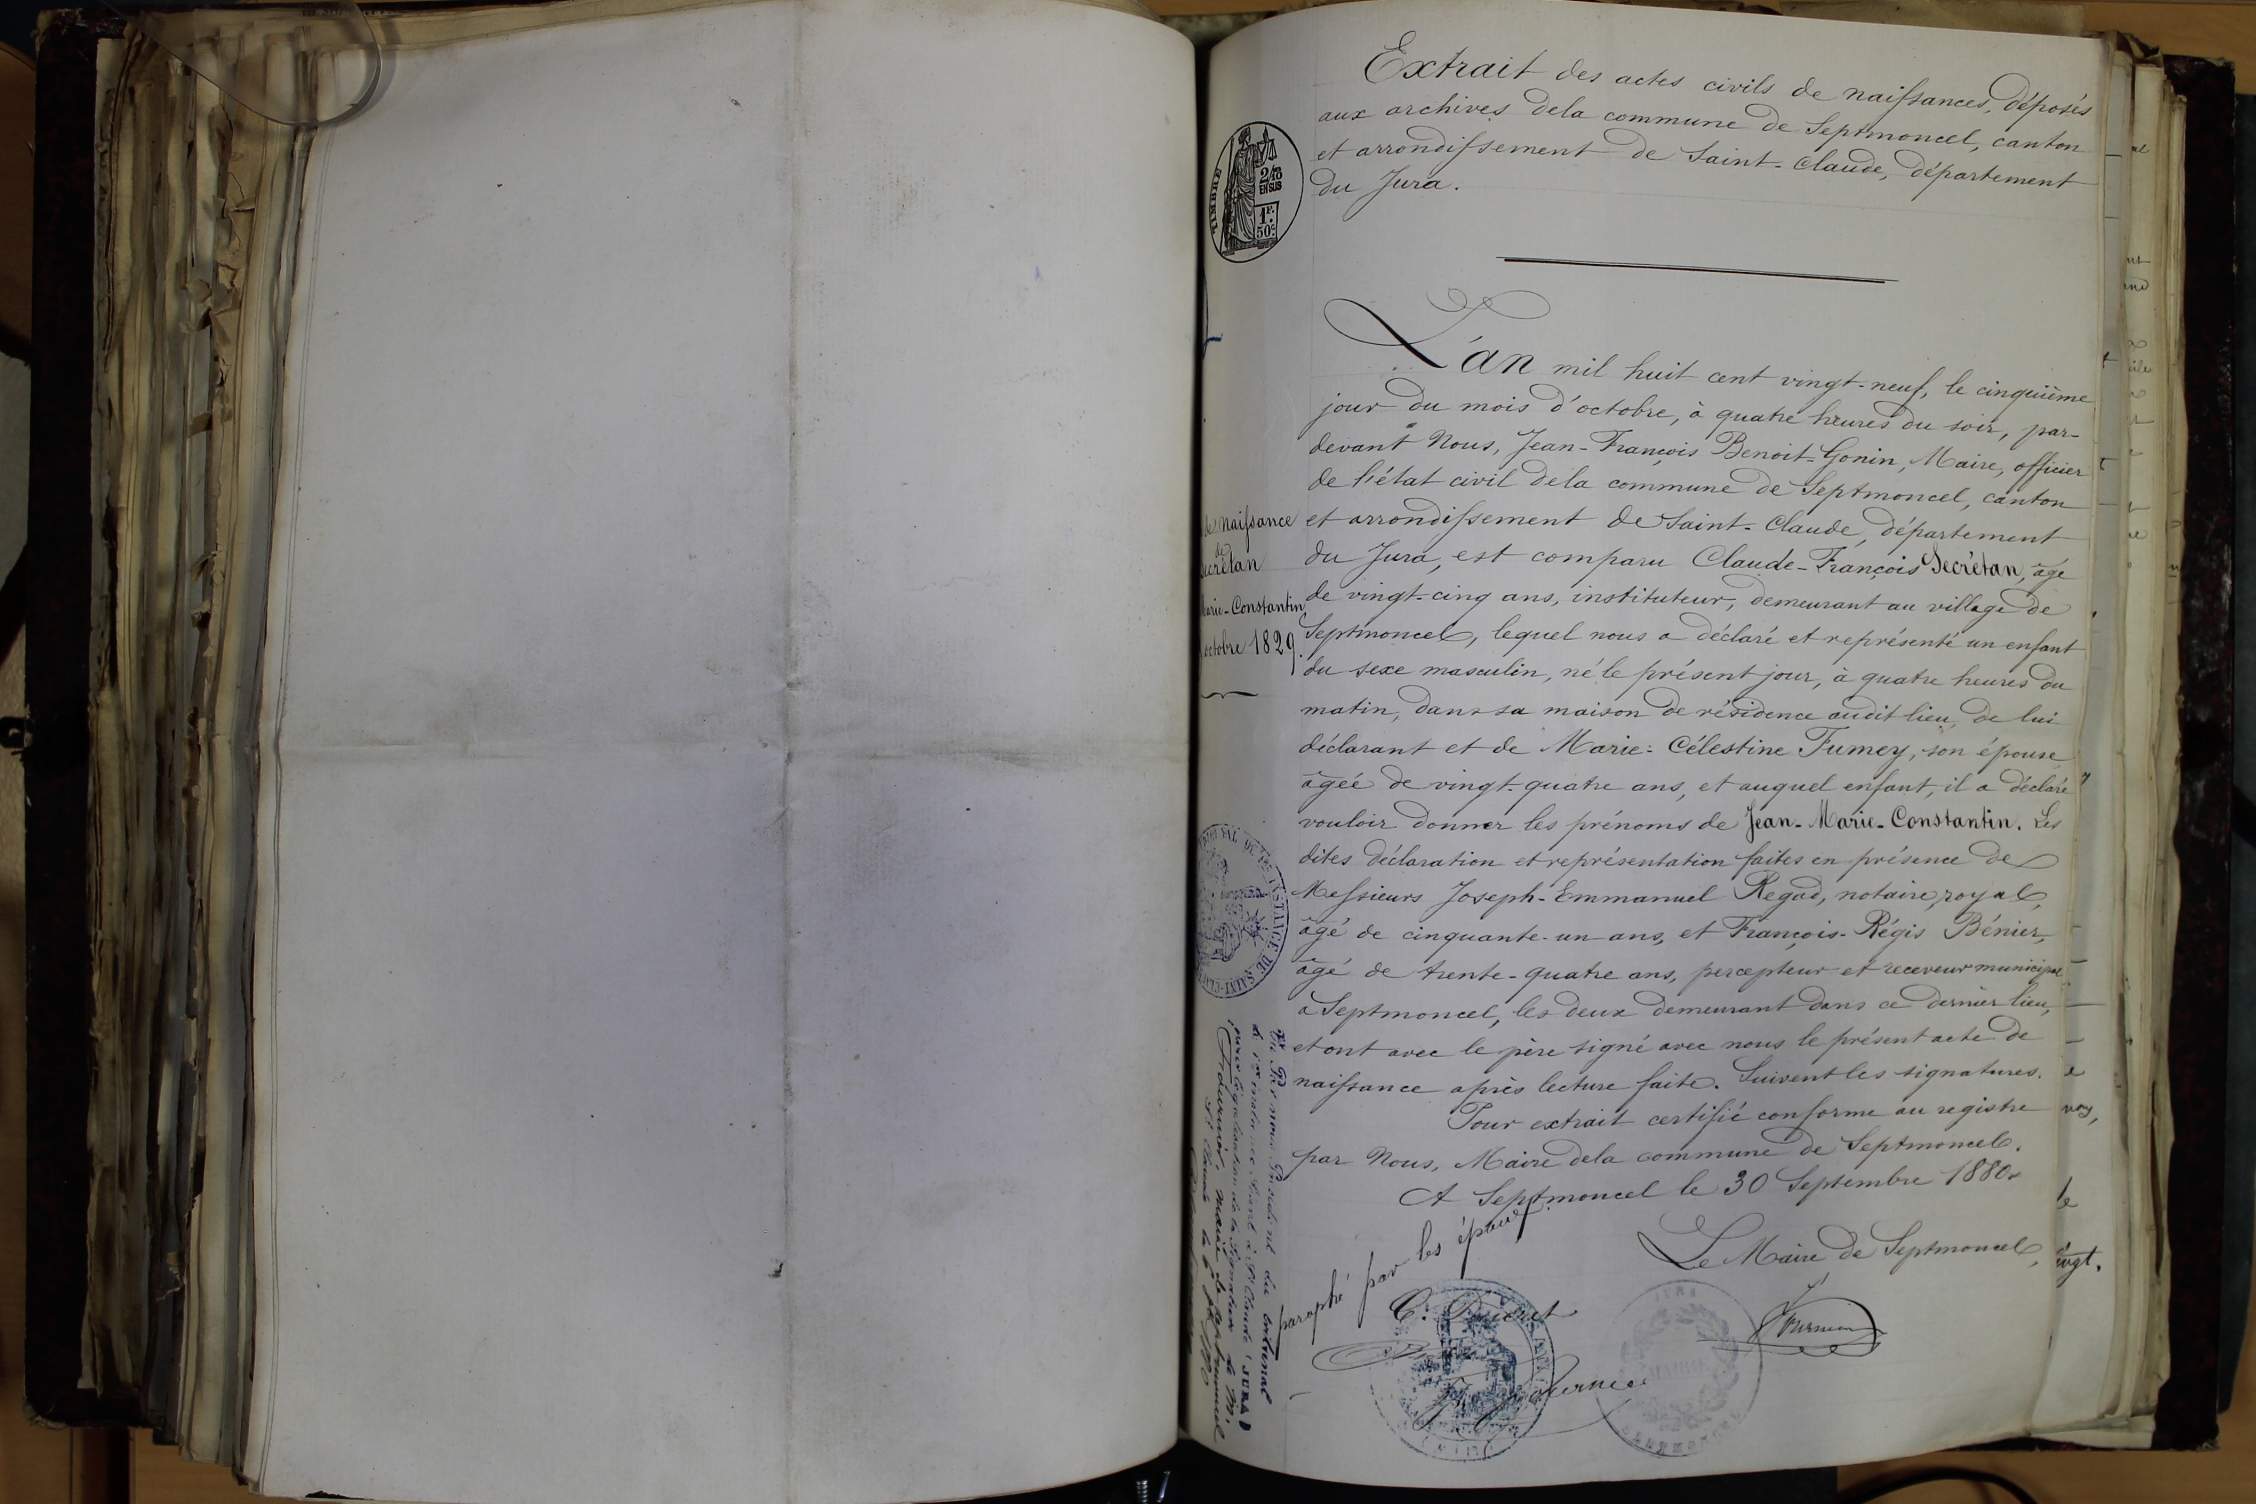 Extrait des actes civils de naissances, déposés
aux archives dela commune de Septmoncel, canton
et arrondissement de Saint-Claude, département
du Jura.
TIMBRE
2/10
EN SUS
1F.
50c
L'an mil huit cent vingt-neuf, le cinquième
jour du mois d'octobre, à quatre heures du soir, par-
devant Nous, Jean-François Benoit-Gonin, Maire, officier
de l'état civil dela commune de Septmoncel, canton
et arrondissement de Saint-Claude, département
du Jura, est comparu Claude-François Secrétan, âgé
de vingt-cinq ans, instituteur, demeurant au village de
Septmoncel, lequel nous a déclaré et représenté un enfant
du sexe masculin, né le présent jour, à quatre heures du
matin, dans sa maison de résidence audit lieu, de lui
déclarant et de Marie-Célestine Fumey, son épouse,
âgée de vingt-quatre ans, et auquel enfant, il a déclaré
vouloir donner les prénoms de Jean-Marie-Constantin. Les
dites déclaration et représentation faites en présence de
Messieurs Joseph-Emmanuel Regad, notaire royal,
âgé de cinquante-un ans, et François-Régis Bénier,
âgé de trente-quatre ans, percepteur et receveur municipal
à Septmoncel, les deux demeurant dans ce dernier lieu,
et ont avec le père signé avec nous le présent acte de
naissance après lecture faite. Suivent les signatures.
Pour extrait certifié conforme au registre
par Nous, Maire dela commune de Septmoncel.
A Septmoncel le 30 Septembre 1880.
Le Maire de Septmoncel,
paraphé par les époux
de naissance
de
Secrétan
Marie-Constantin
octobre 1829.
INSTANCE DE SAINT-CLAUDE
Président du tribunal
St Claude (JURA)
pour légalisation de la signature de M.
maire de Septmoncel
JURA
vingt.